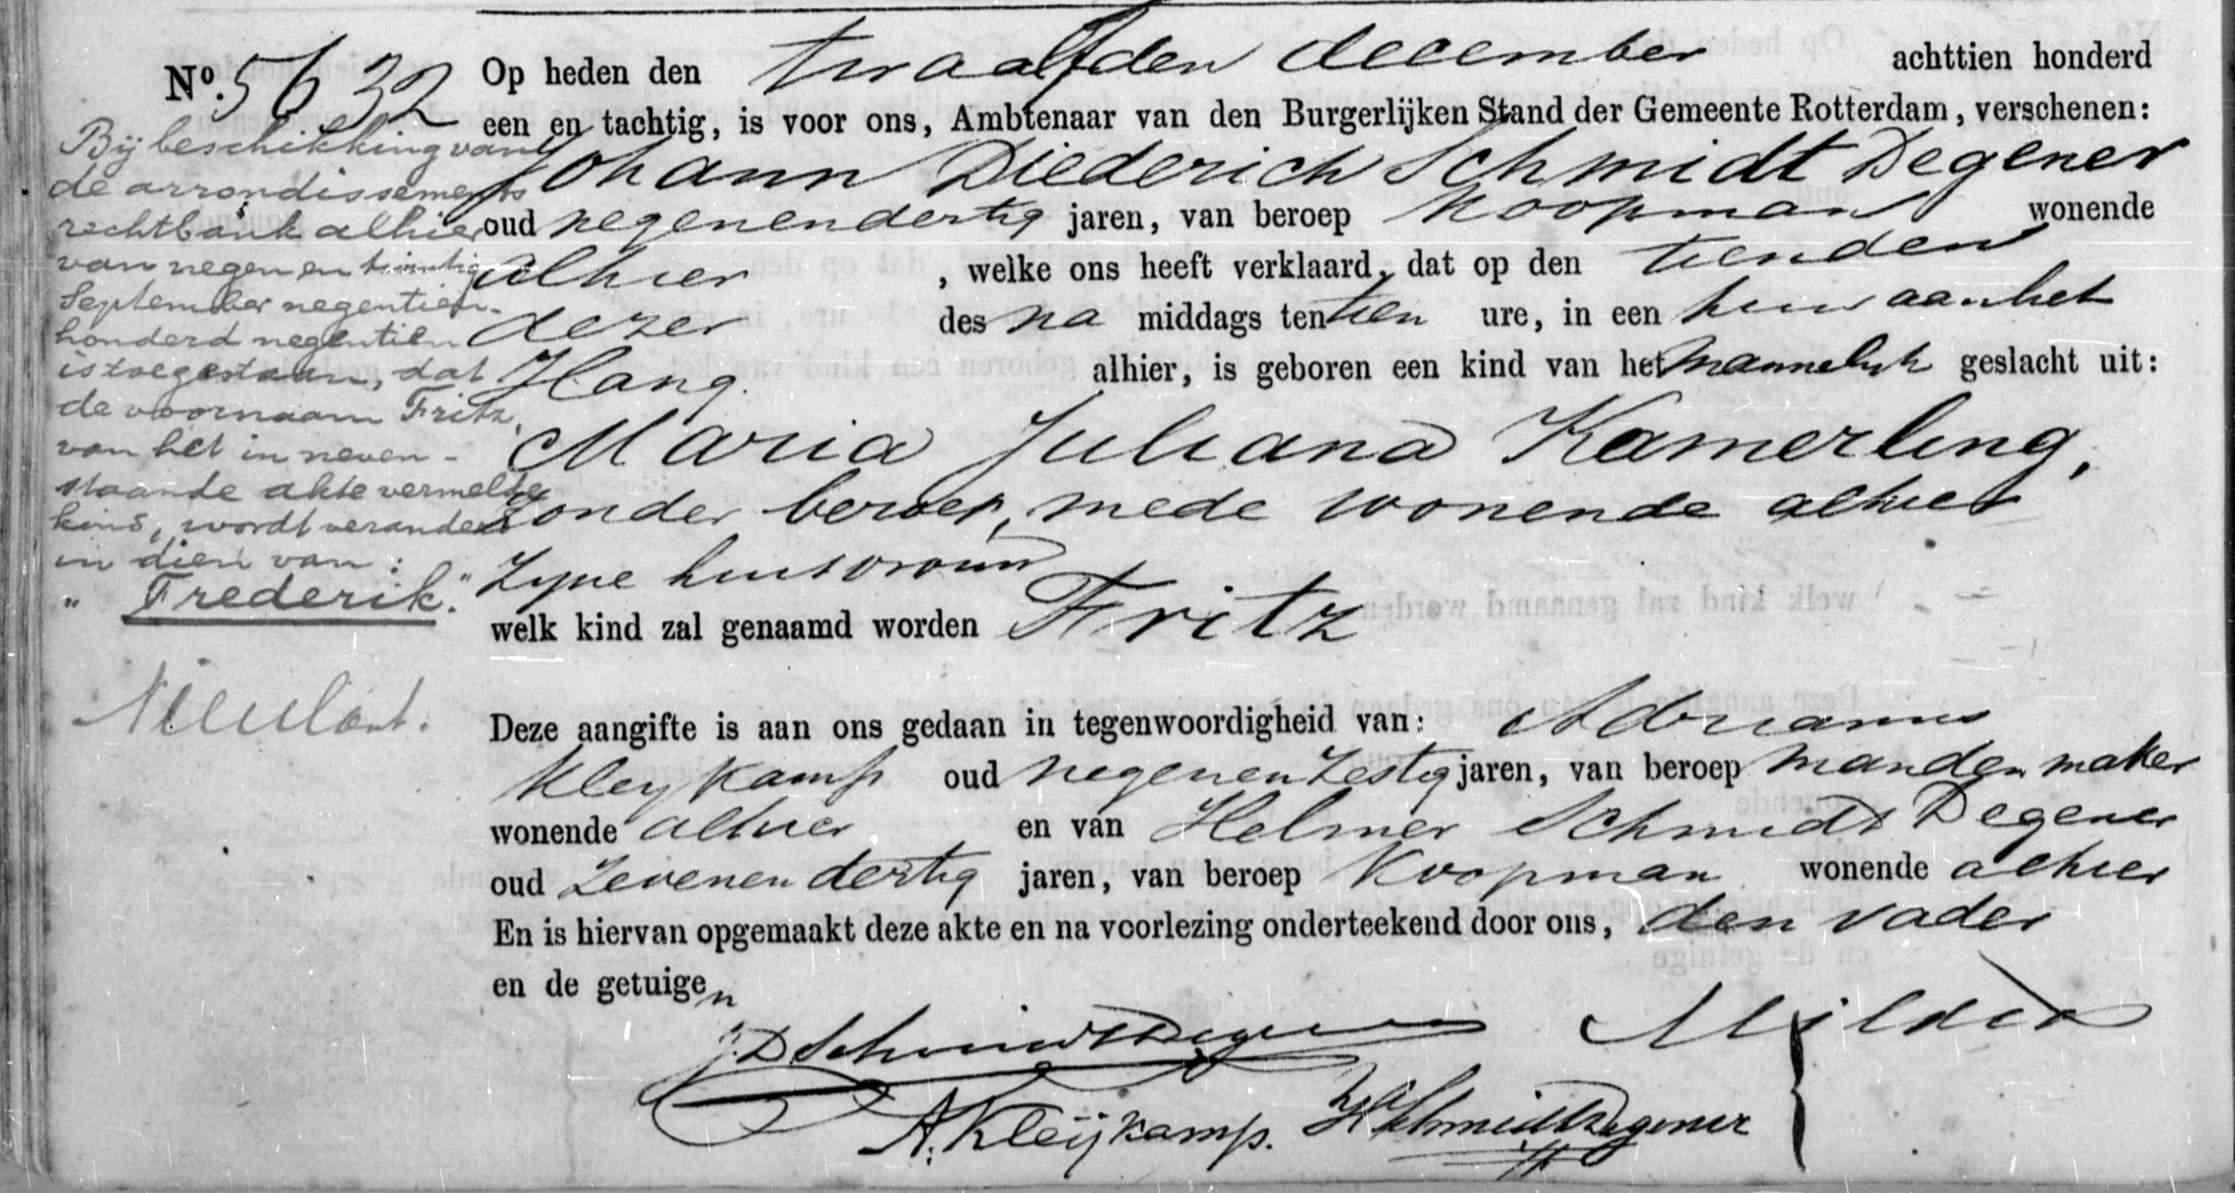 No. 5632
Op heden den twaalfden december achttien honderd
een en tachtig, is voor ons, Ambtenaar van den Burgerlijken Stand der Gemeente Rotterdam, verschenen:
Johann Diederich Schmidt Degener
oud negenendertig jaren, van beroep koopman wonende
alhier, welke ons heeft verklaard, dat op den tienden
dezer des na middags ten tien ure, in een huis aan het
Hang. alhier, is geboren een kind van het mannelyk geslacht uit:
Maria Juliana Kamerling,
zonder beroep, mede wonende alhier
Zyne huisvrouw
welk kind zal genaamd worden Fritz
Deze aangifte is aan ons gedaan in tegenwoordigheid van: Adrianus
Kleykamp oud negenenzestig jaren, van beroep mandenmaker
wonende alhier en van Helmer Schmidt Degener
oud Zevenendertig jaren, van beroep Koopman wonende alhier
En is hiervan opgemaakt deze akte en na voorlezing onderteekend door ons, den vader
en de getuigen
J.D Schmidt Degener
A. Kleijkamp.
H Schmidt Degener
Bij beschikking van
de arrondissements
rechtbank alhier
van negen en twintig
September negentien-
honderd negentien
is toegestaan, dat
de voornaam Fritz,
van het in neven-
staande akte vermelde
kind, wordt veranderd
in dien van:
"Frederik."